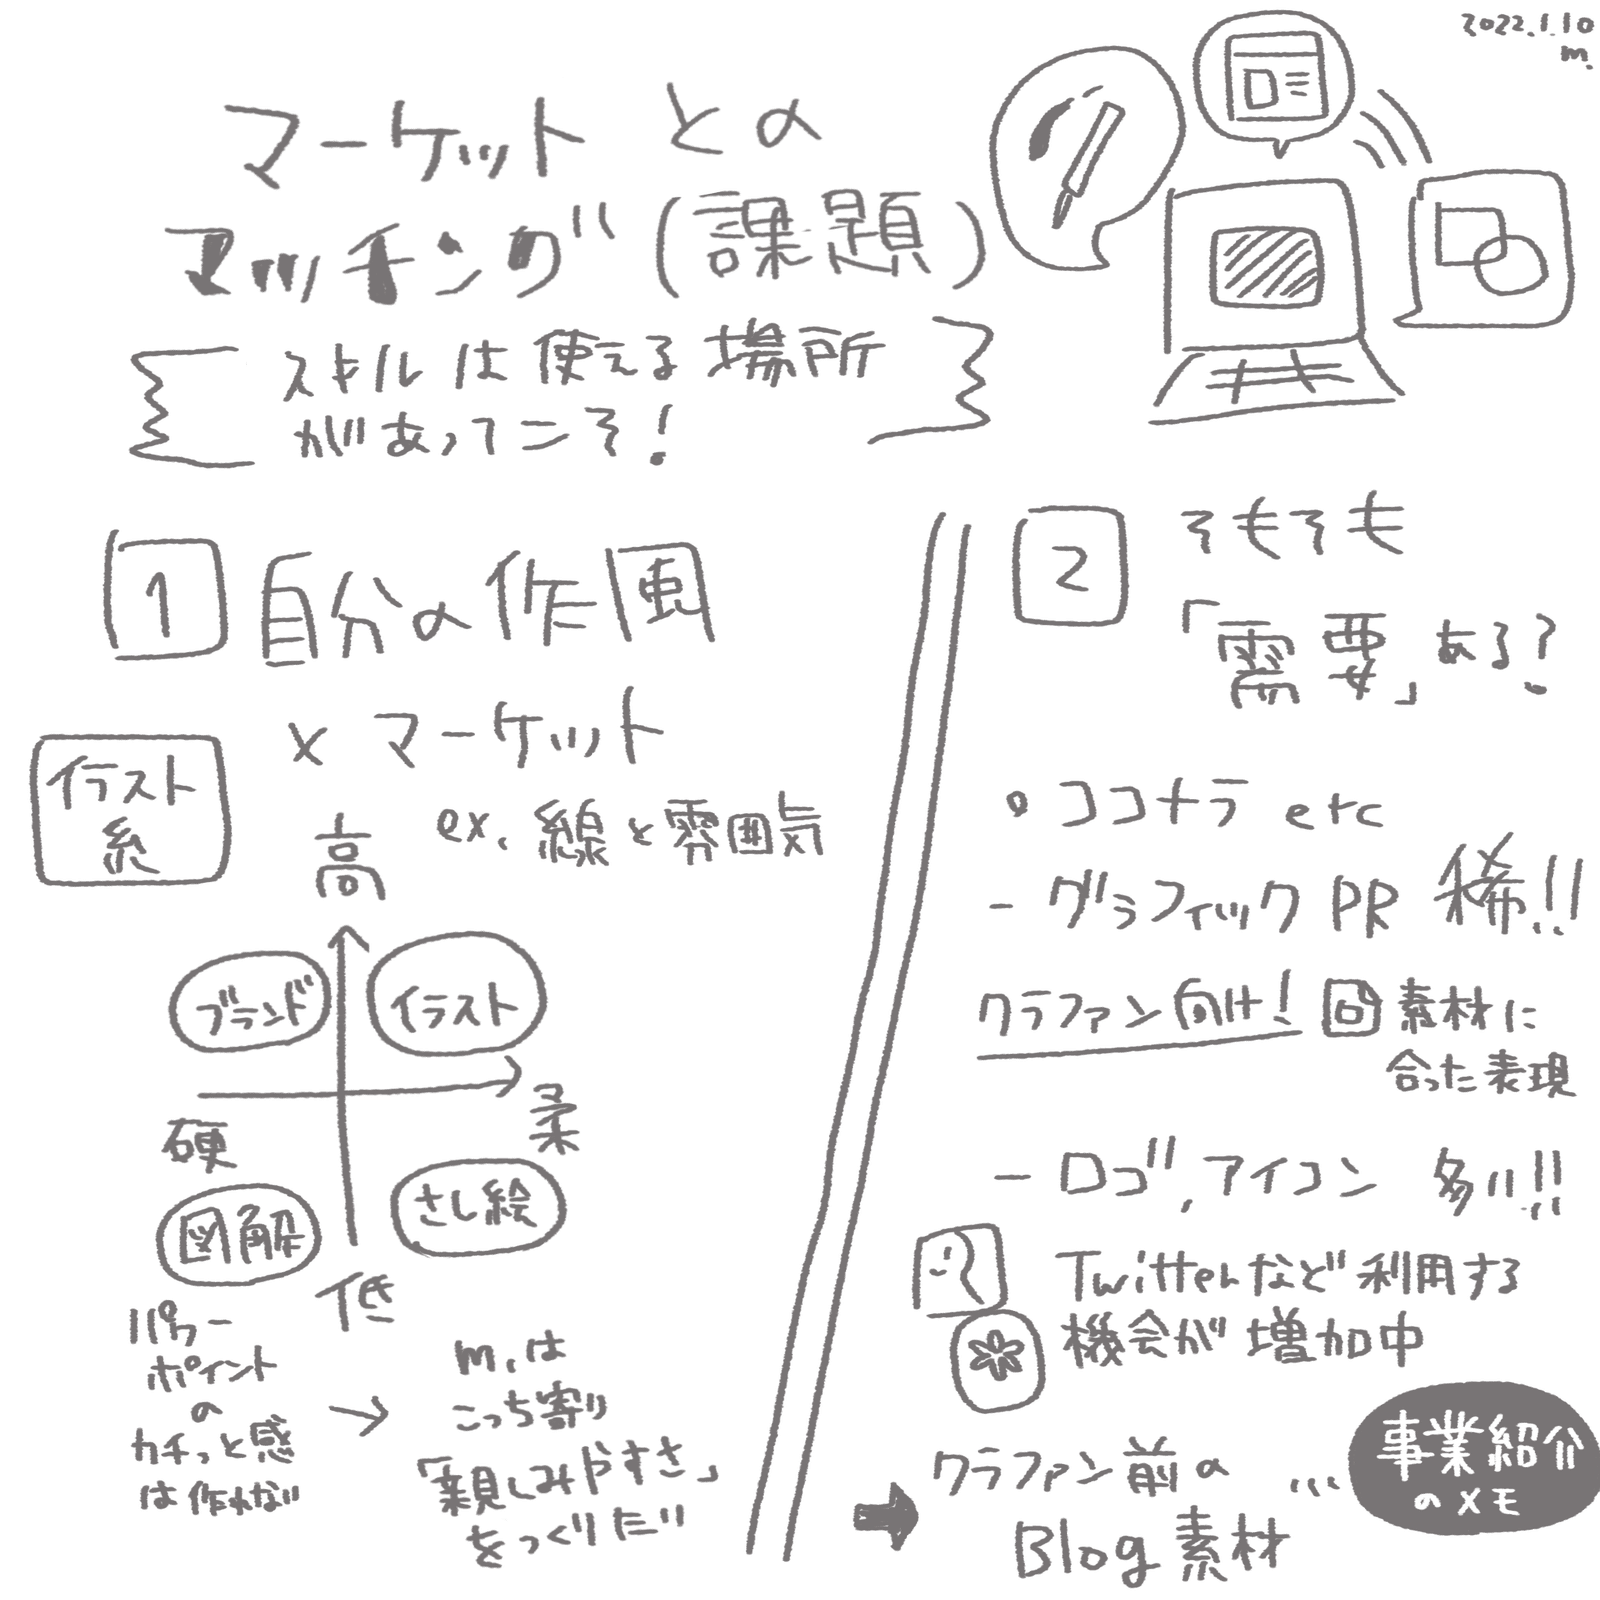 2022.1.10
m.
マーケットとの
マッチング(課題)
スキルは使える場所
があってこそ!
1 自分の作風
× マーケット
イラスト
系
ex. 線と雰囲気
高
ブランド
イラスト
硬
柔
図解
さし絵
低
パワー
ポイント
の
カチっと感
は作れない
→
m.は
こっち寄り
「親しみやすさ」
をつくりたい
2 そもそも
「需要」ある?
ココナラ etc
- グラフィック PR 稀!!
クラファン向け! 素材に
合った表現
- ロゴ,アイコン 多い!!
Twitterなど利用する
機会が増加中
クラファン前の
Blog素材
...
事業紹介
のメモ